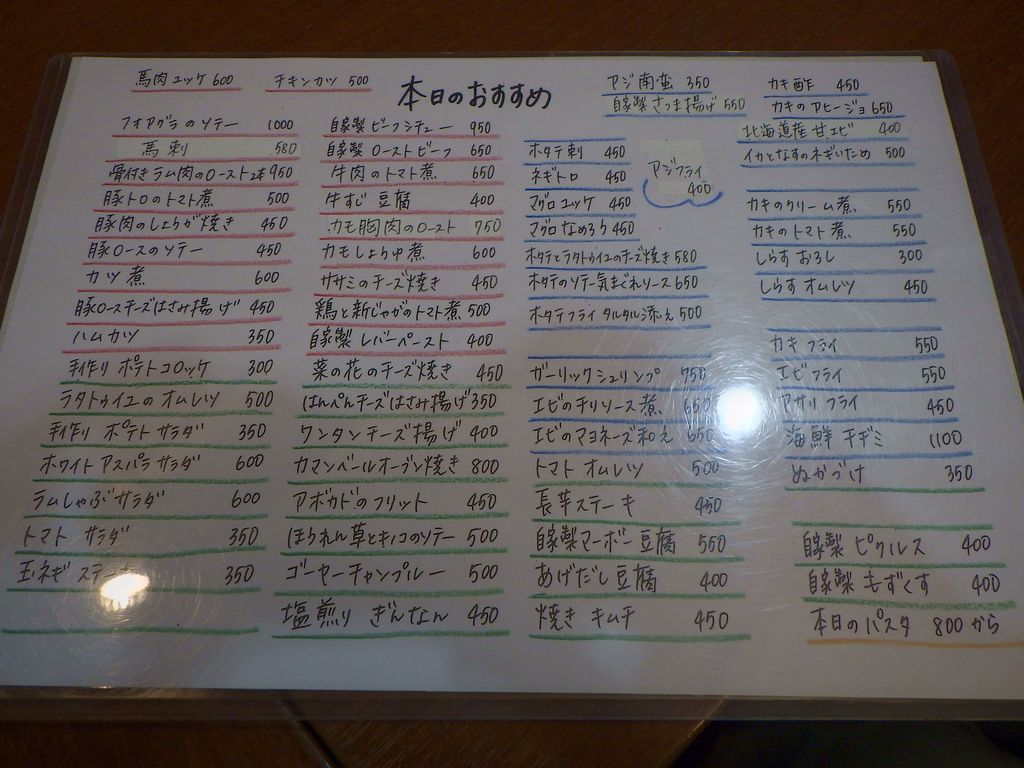 本日のおすすめ
馬肉ユッケ 600
チキンカツ 500
フォアグラのソテー 1000
馬刺 580
骨付きラム肉のロースト2本 950
豚トロのトマト煮 500
豚肉のしょうが焼き 450
豚ロースのソテー 450
カツ煮 600
豚ロースチーズはさみ揚げ 450
ハムカツ 350
手作り ポテトコロッケ 300
ラタトゥイユのオムレツ 500
手作り ポテトサラダ 350
ホワイトアスパラサラダ 600
ラムしゃぶサラダ 600
トマトサラダ 350
玉ネギステーキ 350
自家製 ビーフシチュー 950
自家製 ローストビーフ 650
牛肉のトマト煮 650
牛すじ豆腐 400
カモ胸肉のロースト 750
カモしょうゆ煮 600
ササミのチーズ焼き 450
鶏と新じゃがのトマト煮 500
自家製 レバーペースト 400
菜の花のチーズ焼き 450
はんぺんチーズはさみ揚げ 350
ワンタンチーズ揚げ 400
カマンベールオーブン焼き 800
アボカドのフリット 450
ほうれん草とキノコのソテー 500
ゴーヤーチャンプルー 500
塩煎り ぎんなん 450
アジ南蛮 350
自家製さつま揚げ 550
ホタテ刺 450
ネギトロ 450
マグロユッケ 450
マグロなめろう 450
アジフライ
400
ホタテとラタトゥイユのチーズ焼き 580
ホタテのソテー気まぐれソース 650
ホタテフライ タルタル添え 500
ガーリックシュリンプ 750
エビのチリソース煮 650
エビのマヨネーズ和え 650
トマトオムレツ 500
長芋ステーキ 450
自家製マーボー豆腐 550
あげだし豆腐 400
焼きキムチ 450
カキ酢 450
カキのアヒージョ 650
北海道産甘エビ 400
イカとなすのネギいため 500
カキのクリーム煮 550
カキのトマト煮 550
しらすおろし 300
しらすオムレツ 450
カキフライ 550
エビフライ 550
アサリフライ 450
海鮮チヂミ 1100
ぬかづけ 350
自家製 ピクルス 400
自家製 もずくす 400
本日のパスタ 800から